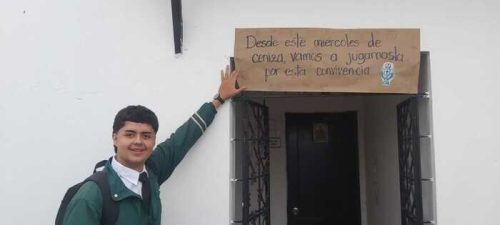 Desde este miercoles de
ceniza, vamos a jugarnosla
por esta convivencia